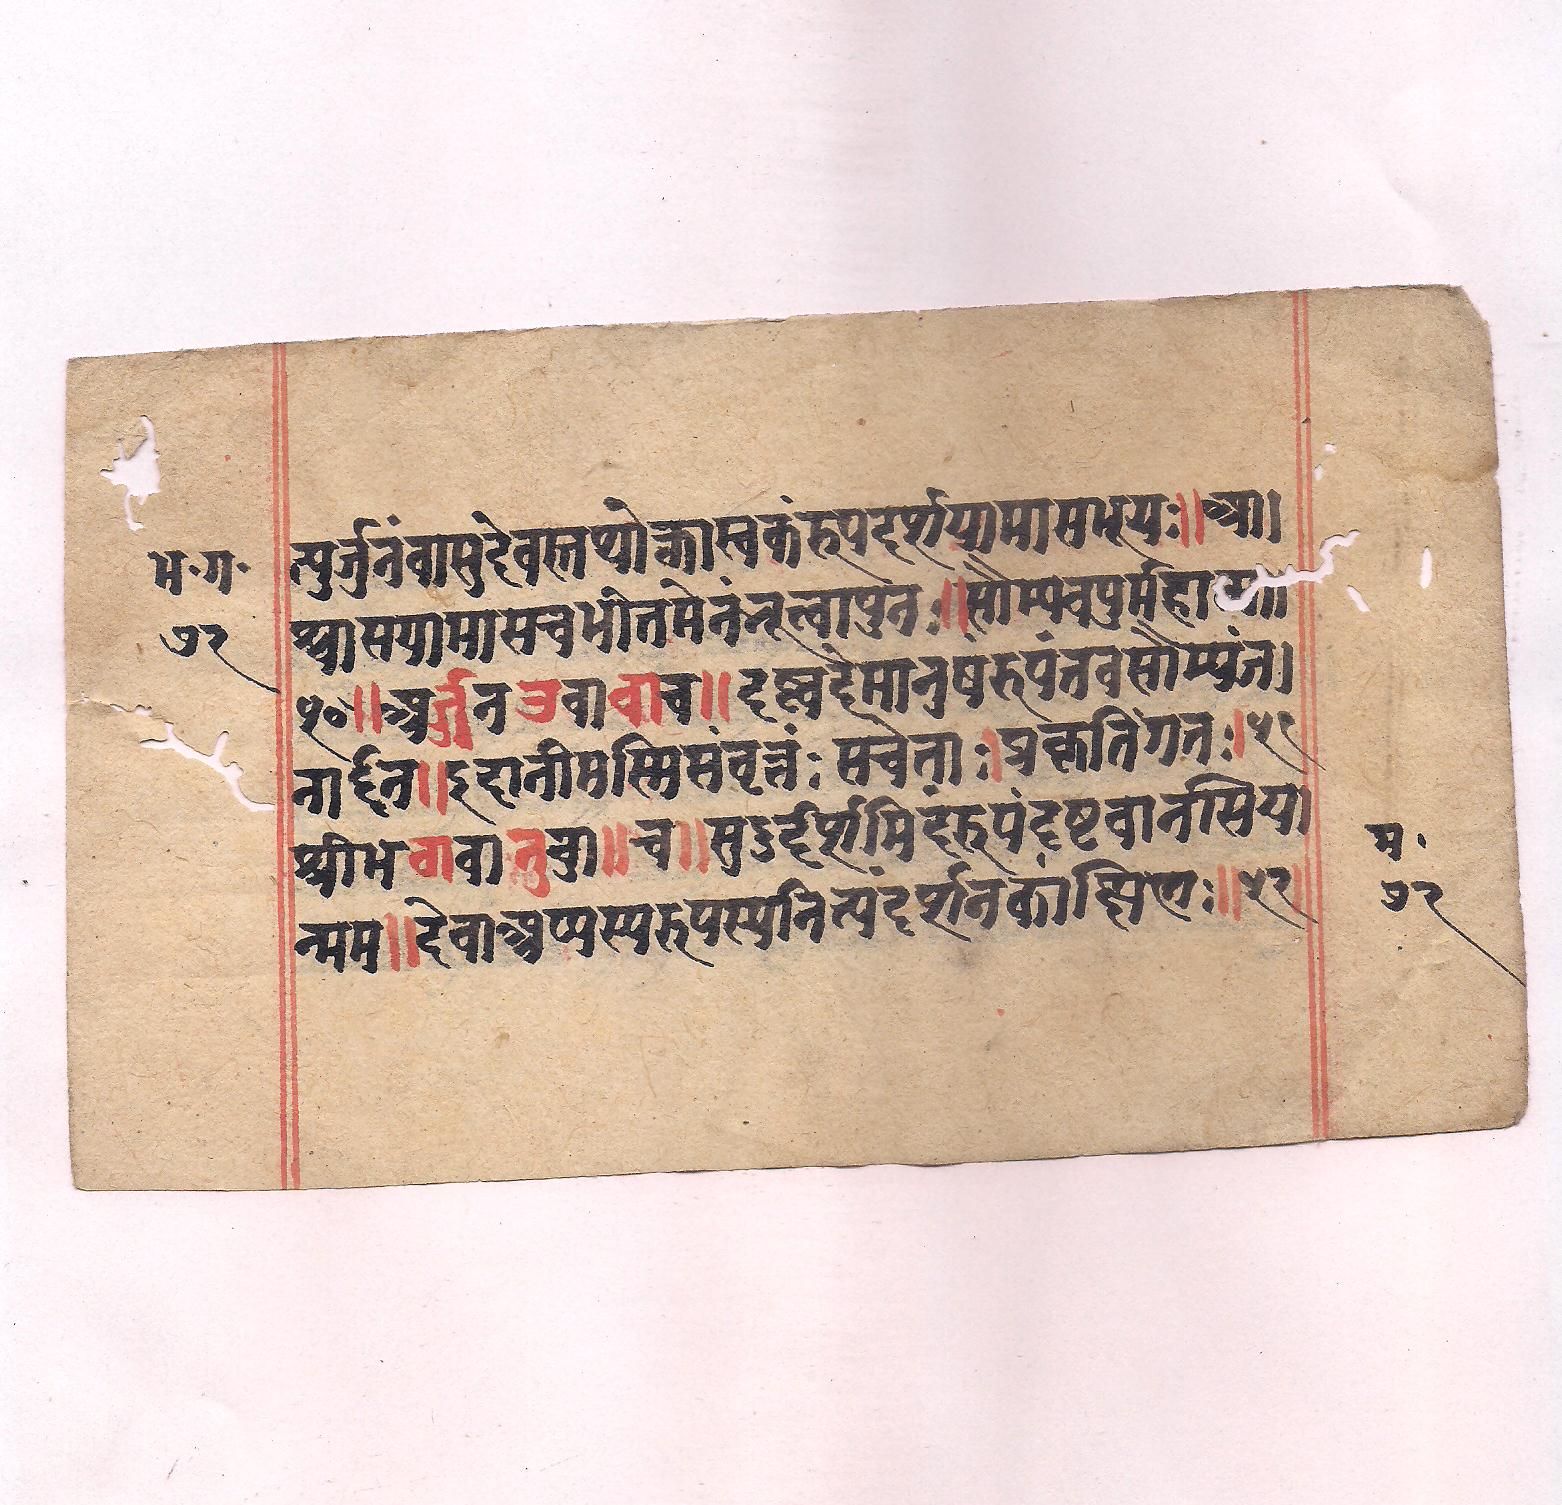 भ·ग·
७२
त्पुर्जुनंवासुदेवस्तथोक्त्वास्वकंरुपदर्शयामासभूयः॥आ।
श्वासयामासचभीतमेनंभूत्वापुनः॥सौम्यवपुर्महात्मा॥
५०॥अर्जुनउवावाच॥दृष्ट्वेदंमानुषंरुपंतवसौम्यंज।
नार्द्दन॥इदानीमस्मिसंवृत्तं:सचेताः।प्रकृतिंगतः।५१
श्रीभवावानुवा॥च॥सुऽर्दृर्शमिदंरुपंदृष्टवानसिय।
न्मम॥देवाअप्यस्यरुपस्यनित्यंदर्शनकांक्षिणः॥५२॥
म·
७२